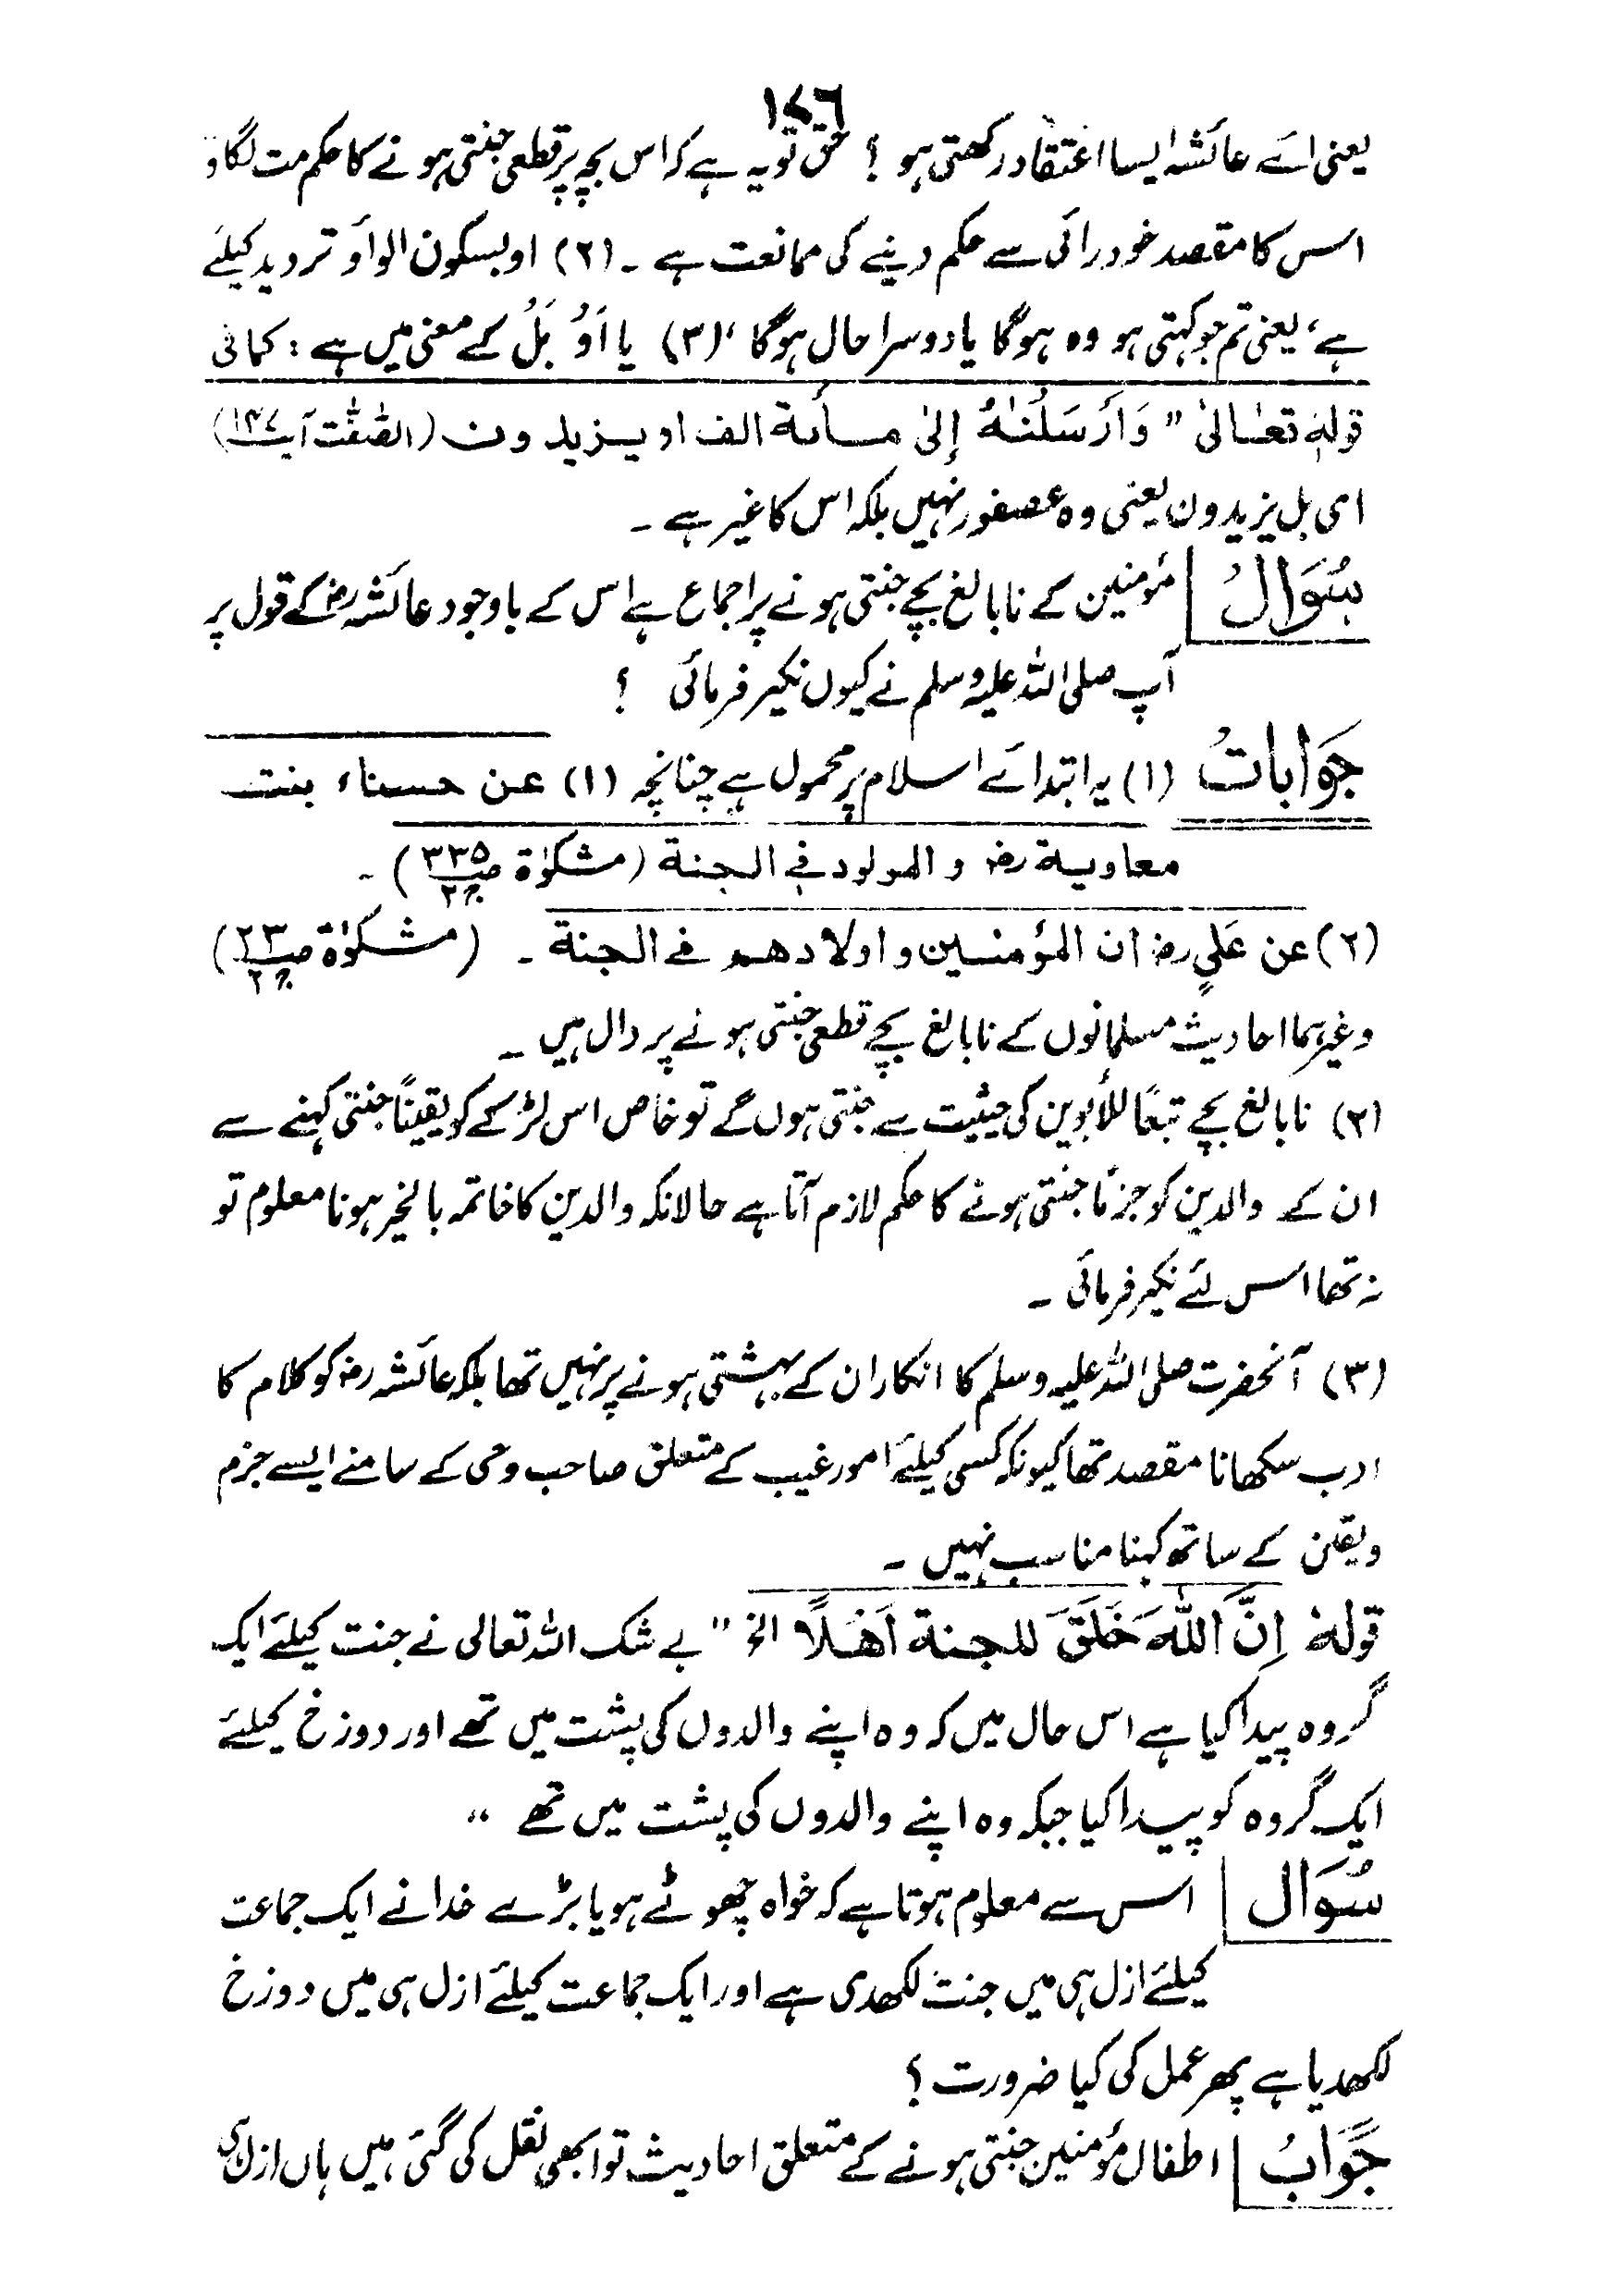 ١٧٦
یعنی اے عائشہ ایسا اعتقاد رکھتی ہو ؟ حق تو یہ ہے کہ اس بچہ پر قطعی جنتی ہونے کا حکم مت لگاؤ
اس کا مقصد خود رائی سے حکم دینے کی ممانعت ہے ۔ (۲) او بسکون الواؤ تردید کیلئے
ہے، یعنی تم جو کہتی ہو وہ ہوگا یا دوسرا حال ہوگا ، (۳) یا اَوْ بَلْ کے معنی میں ہے : کما فی
قولہٖ تعالیٰ " وَاَرْسَلْنٰهُ إِلیٰ مأىة الف او یزیدون (الصّٰفّٰت آیت ١٤٧)
ای بل یزیدون یعنی وہ عصفور نہیں بلکہ اس کا غیر ہے ۔
سُوَالْ مؤمنین کے نابالغ بچے جنتی ہونے پر اجماع ہے اس کے باوجود عائشہ رضؓ کے قول پر
آپ صلی اللہ علیہ وسلم نے کیوں نکیر فرمائی ؟
جَوَاباتْ (١) یہ ابتدائے اسلام پر محمول ہے چنانچہ (١) عن حسناء بنت
معاویة رضؓ والمولود فی الجنة (مشکوٰة صـ ٣٣٥ ج ٢) ۔
(٢) عن عَلیٍ رضؓ ان المؤمنین و اولادهم فی الجنة ۔ (مشکوٰة صـ ٢٣ ج ٢)
وغیرہما احادیث مسلمانوں کے نابالغ بچے قطعی جنتی ہونے پر دال ہیں ۔
(۲) نابالغ بچے تبعًا للأبوین کی حیثیت سے جنتی ہوں گے تو خاص اس لڑکے کو یقیناً جنتی کہنے سے
ان کے والدین کو جزمًا جنتی ہونے کا حکم لازم آتا ہے حالانکہ والدین کا خاتمہ بالخیر ہونا معلوم تو
نہ تھا اس لئے نکیر فرمائی ۔
(۳) آنحضرت صلی اللہ علیہ وسلم کا انکار ان کے بہشتی ہونے پر نہیں تھا بلکہ عائشہ رضؓ کو کلام کا
ادب سکھانا مقصد تھا کیونکہ کسی کیلئے امور غیب کے متعلق صاحب وحی کے سامنے ایسے جزم
ویقین کے ساتھ کہنا مناسب نہیں ۔
قولهٗ اِنَّ اللّٰهَ خَلَقَ للجنة اَهْلًا الخ " بے شک اللہ تعالی نے جنت کیلئے ایک
گروہ پیدا کیا ہے اس حال میں کہ وہ اپنے والدوں کی پشت میں تھے اور دوزخ کیلئے
ایک گروہ کو پیدا کیا جبکہ وہ اپنے والدوں کی پشت میں تھے "
سُوَال اس سے معلوم ہوتا ہے کہ خواہ چھوٹے ہو یا بڑے خدا نے ایک جماعت
کیلئے ازل ہی میں جنت لکھدی ہے اور ایک جماعت کیلئے ازل ہی میں دوزخ
لکھدیا ہے پھر عمل کی کیا ضرورت ؟
جَوَابْ اطفال مؤمنین جنتی ہونے کے متعلق احادیث تو ابھی نقل کی گئی ہیں ہاں ازل ہی